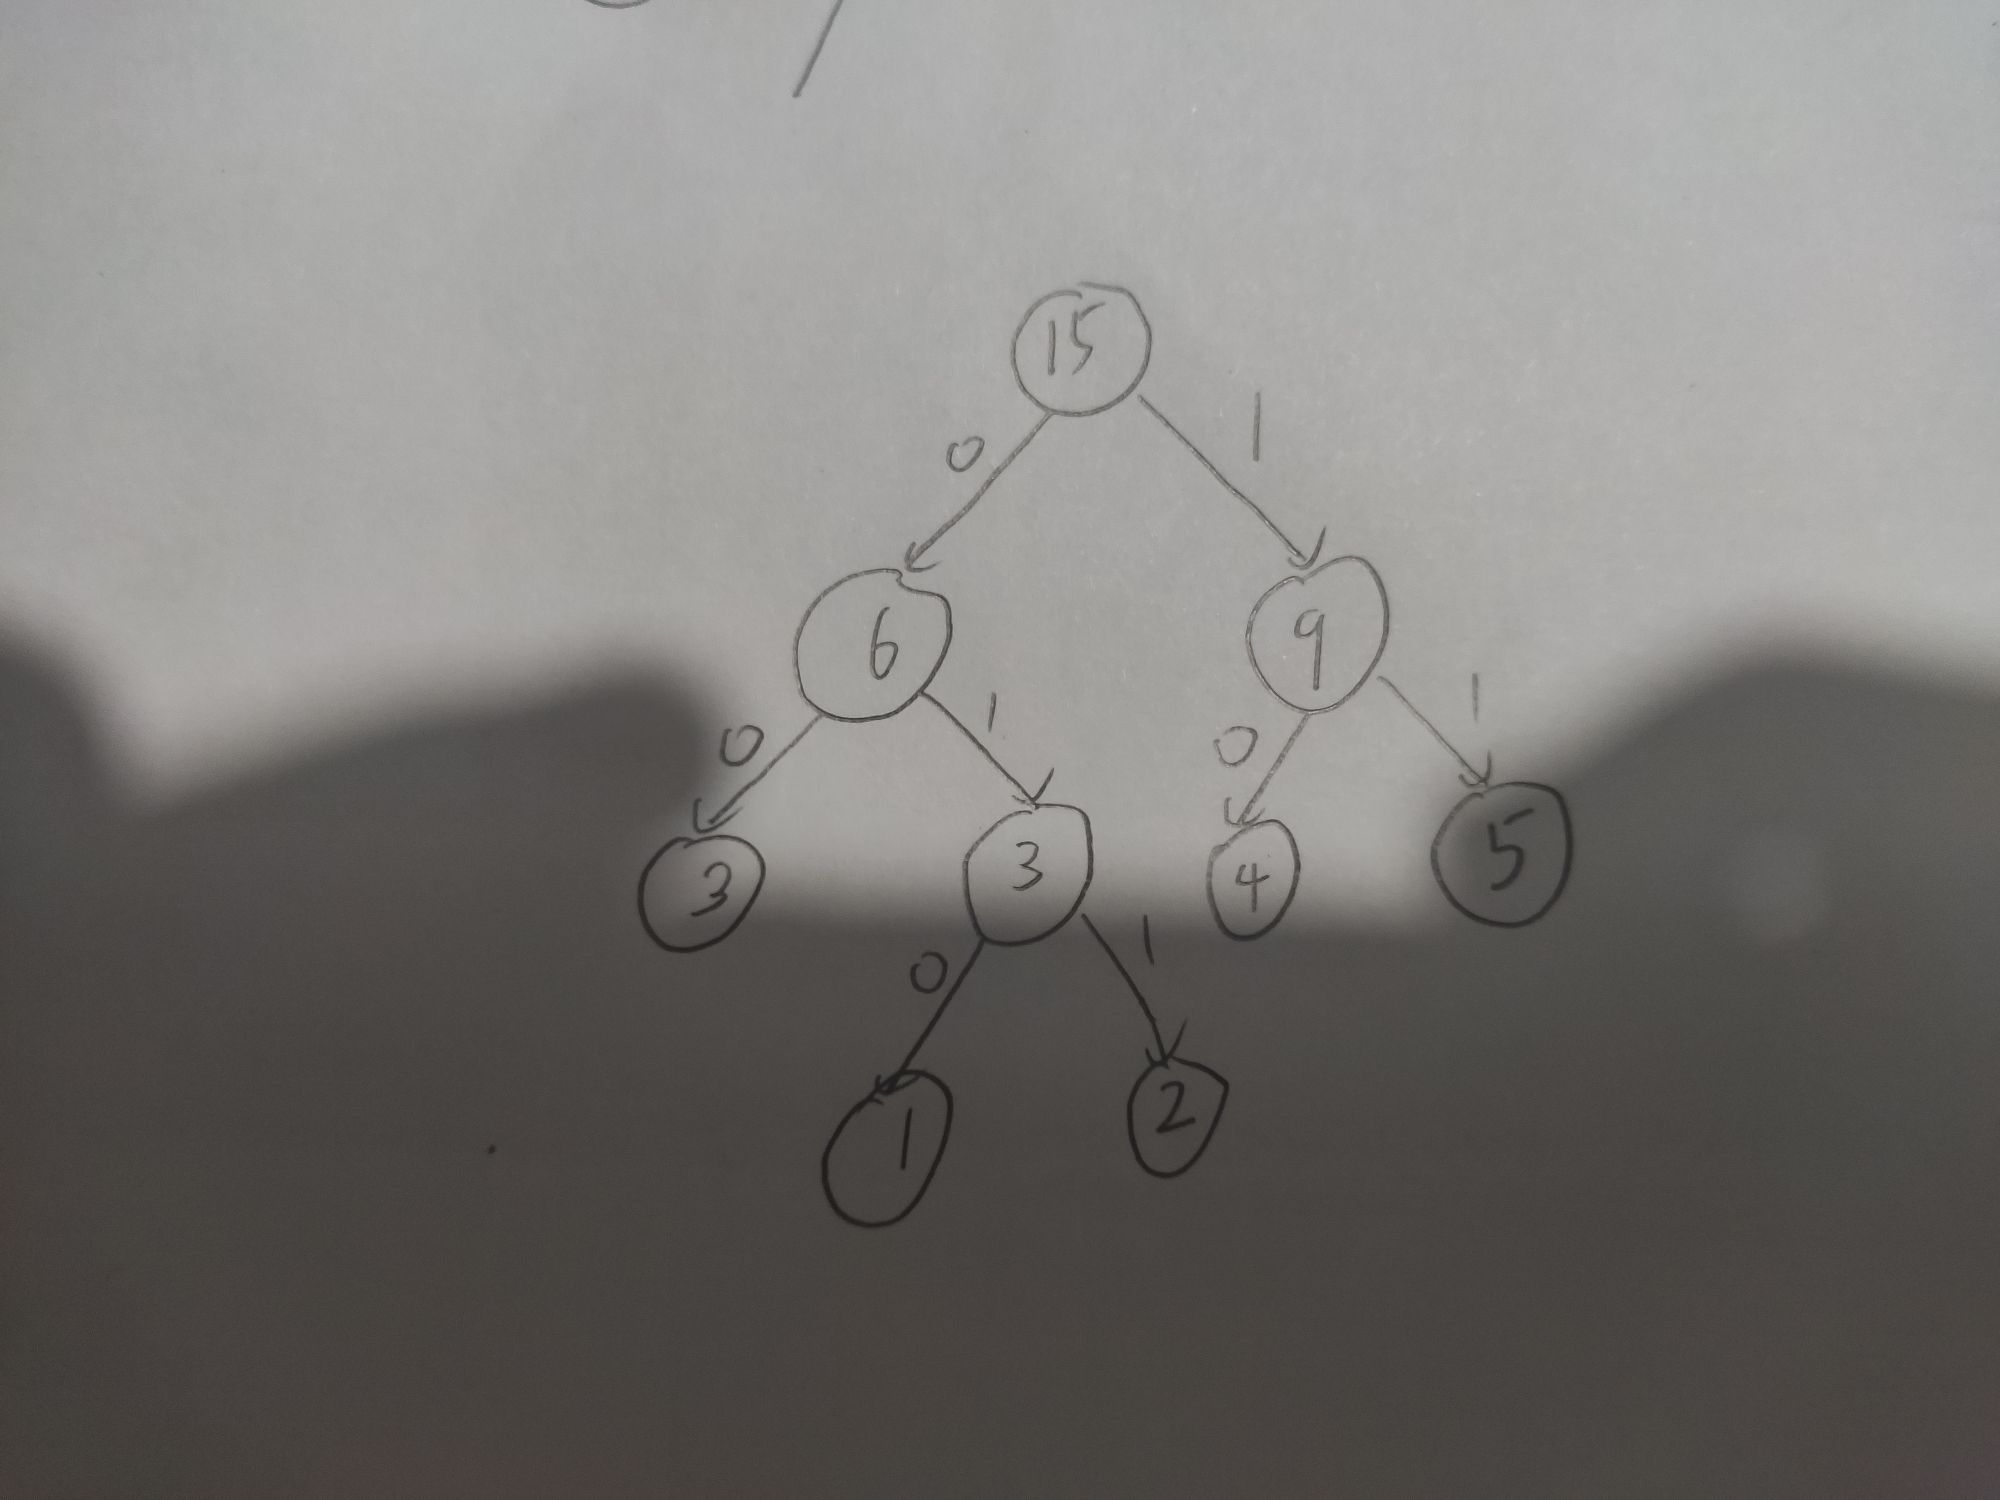 15
0 1
6 9
0 1 0 1
3 3 4 5
0 1
1 2